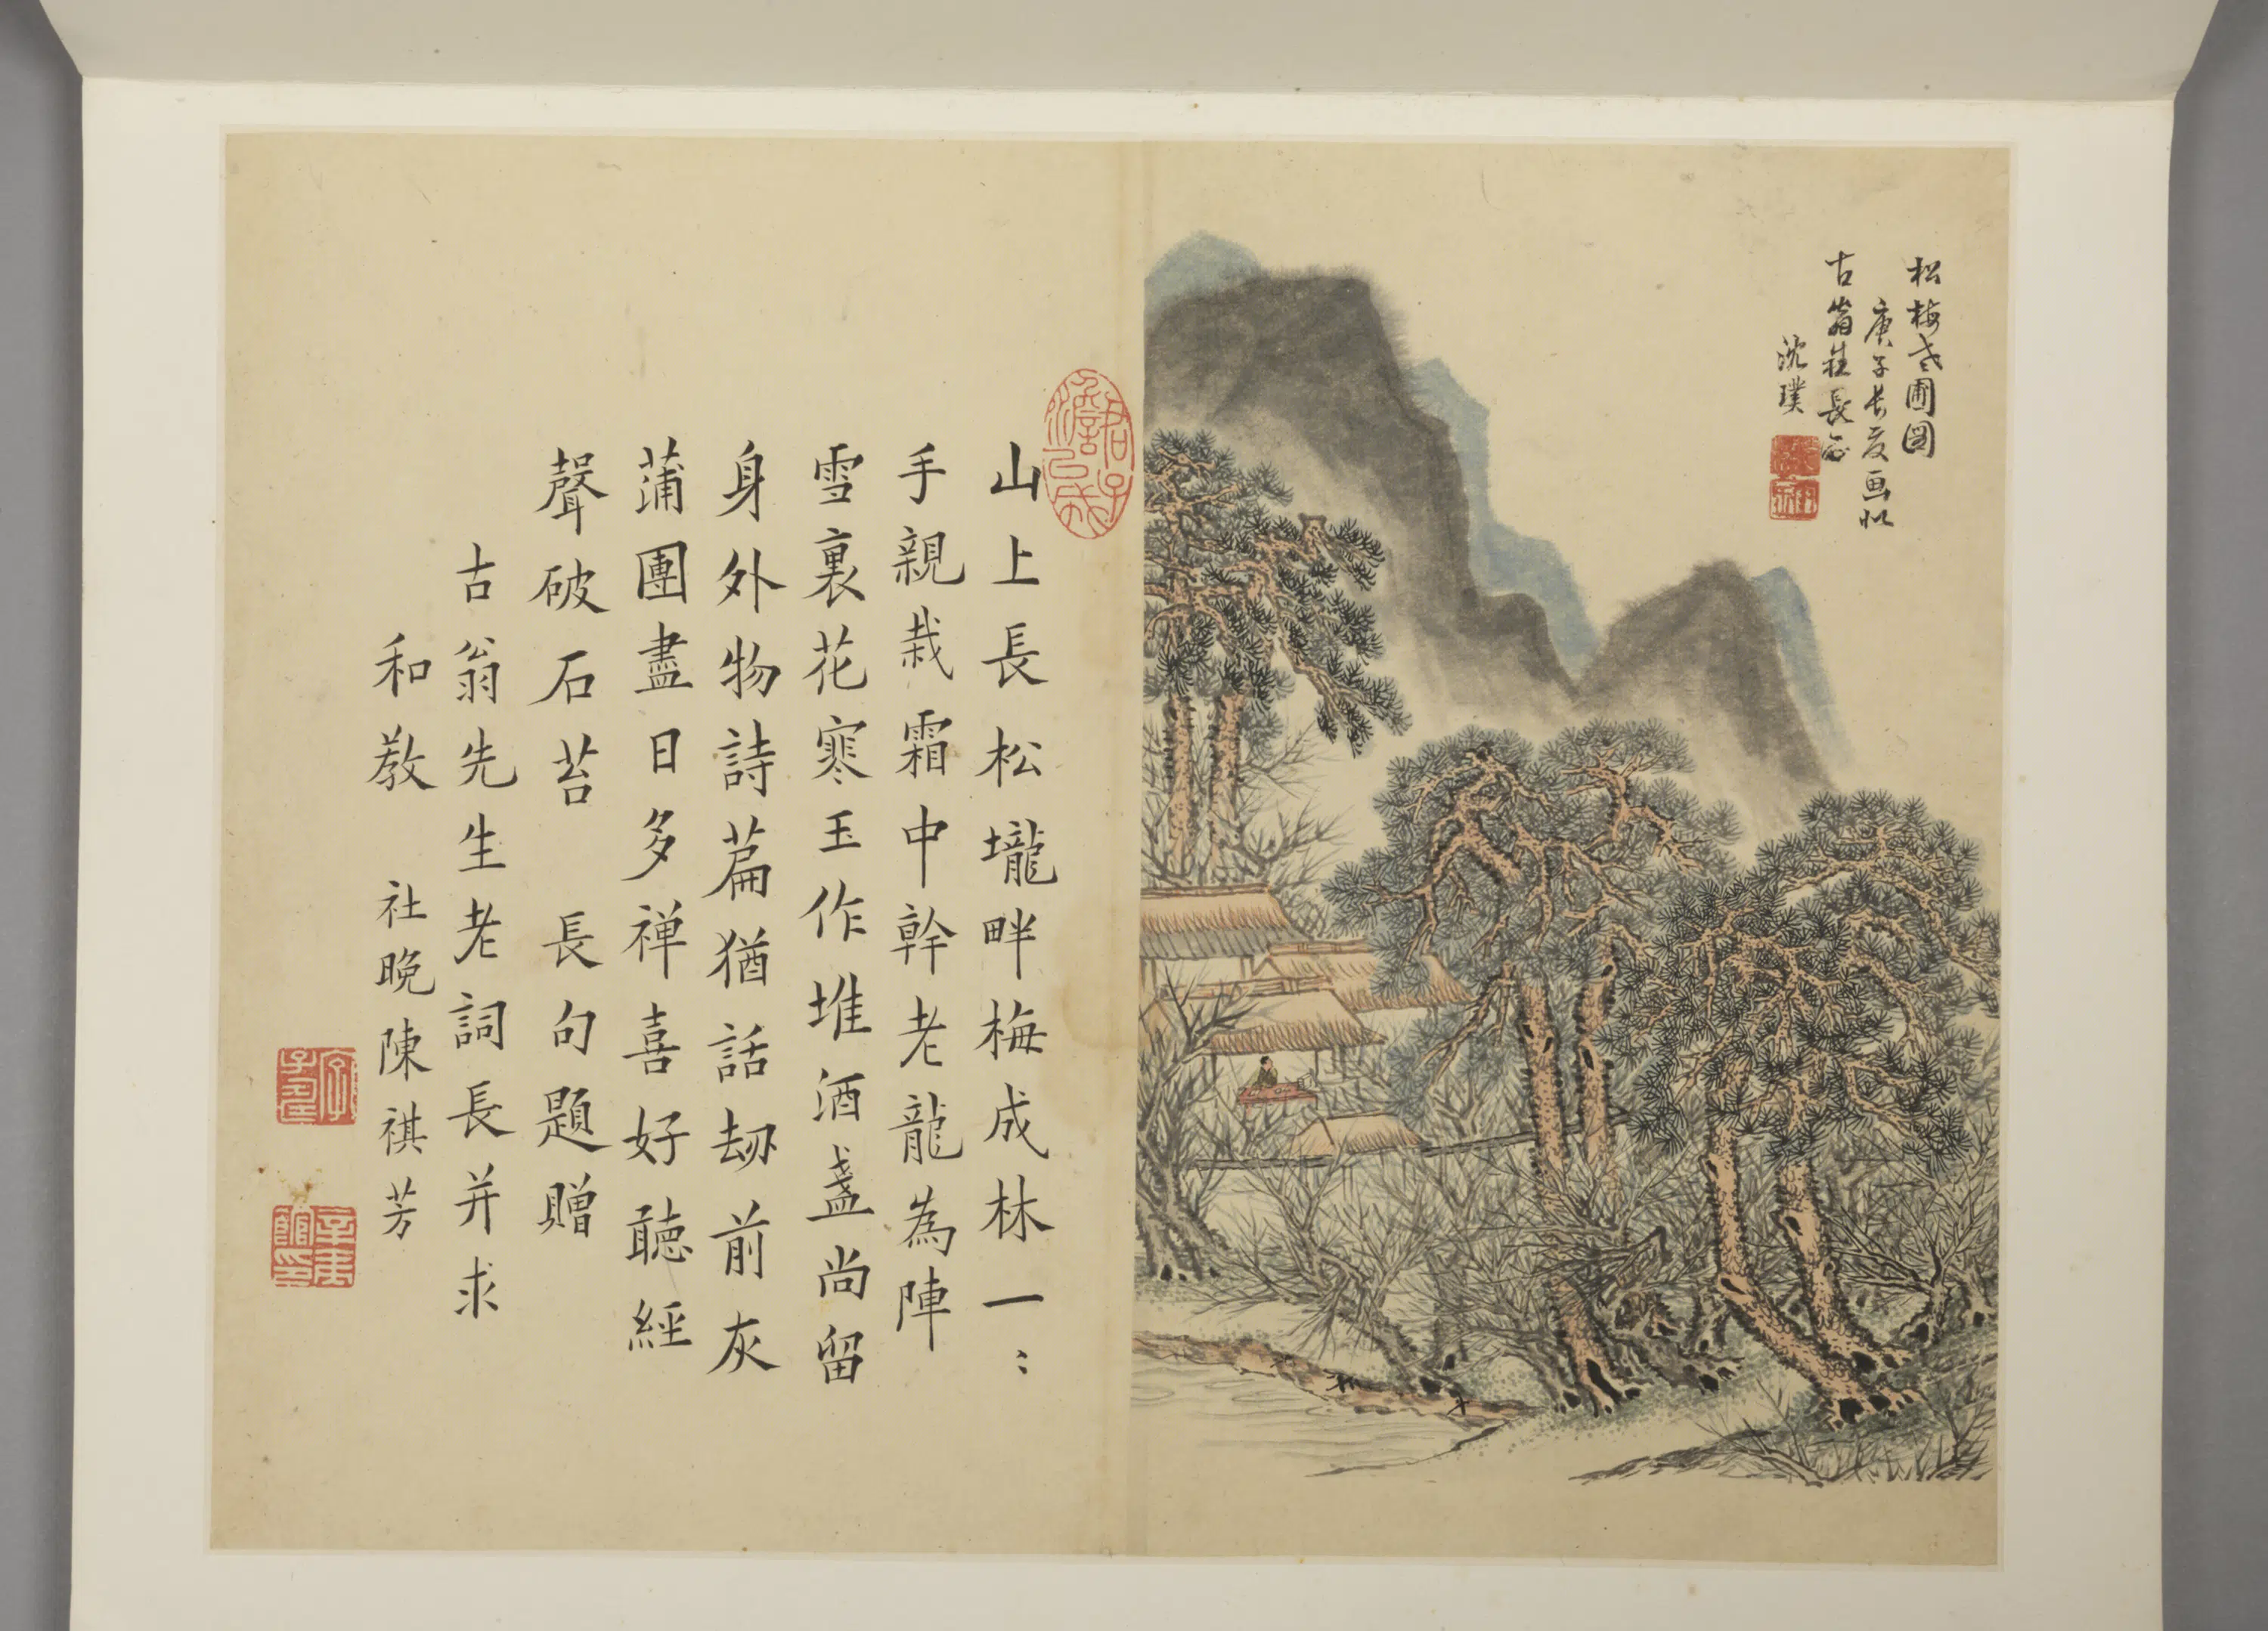 松梅老圃圖
庚子長夏画似
古翁社長正
沈璞
君子澹㠯成
山上長松壠畔梅成林一〻
手親栽霜中幹老龍為陣
雪裏花寒玉作堆酒盞尚留
身外物詩萹猶話刼前灰
蒲團盡日多禅喜好聽經
聲破石苔 長句題贈
古翁先生老詞長并求
和教 社晚陳祺芳